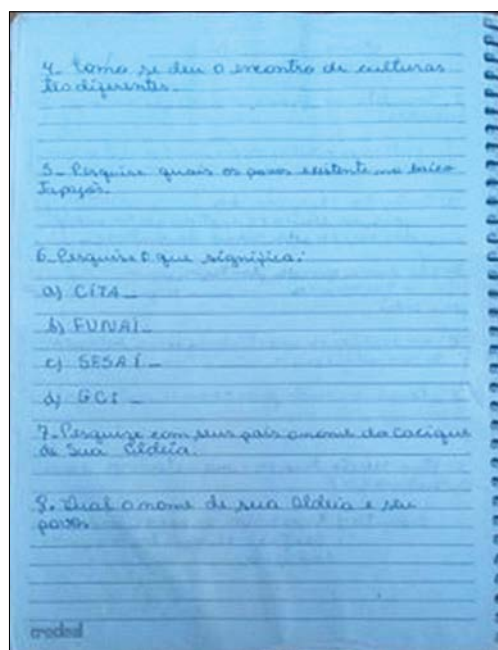 4- Como se deu o encontro de culturas
tão diferentes.
5- Pesquise quais os povos existente no baixo
Tapajós.
6- Pesquise o que significa:
a) CITA -
b) FUNAI -
c) SESAI -
d) GCI -
7- Pesquize com seus pais o nome do Cacique
de Sua Aldeia.
8. Qual o nome de sua Aldeia e seu
povos
credeal